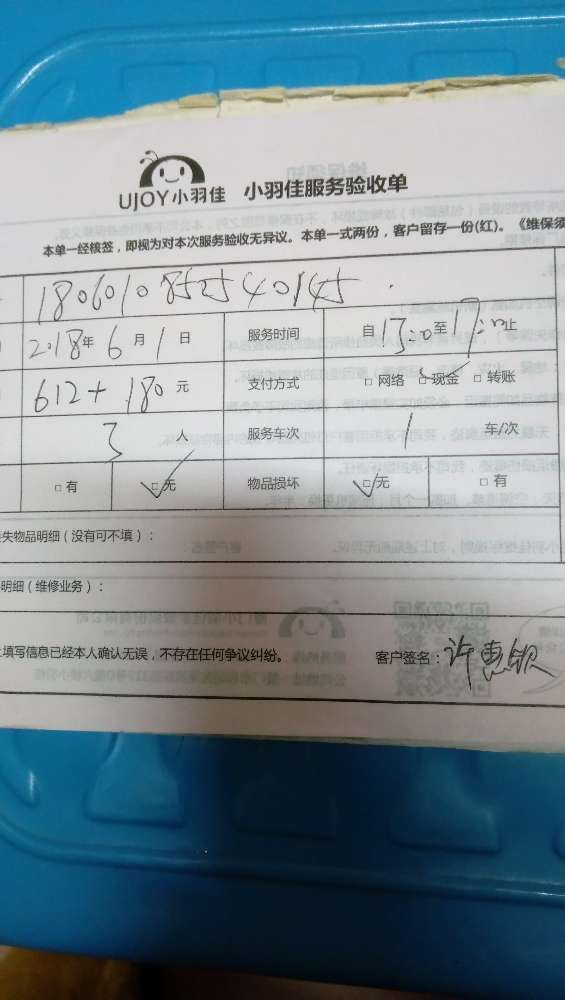 UJOY小羽佳 小羽佳服务验收单
本单一经核签，即视为对本次服务验收无异议。本单一式两份，客户留存一份(红)。《维保须
1806010852540145
2018年6月1日 服务时间 自13:00至17:00止
612+180元 支付方式 □网络 □现金 □转账
3人 服务车次 1车/次
□有 □无 物品损坏 □无 □有
失物品明细（没有可不填）：
明细（维修业务）：
填写信息已经本人确认无误，不存在任何争议纠纷。 客户签名：许惠银